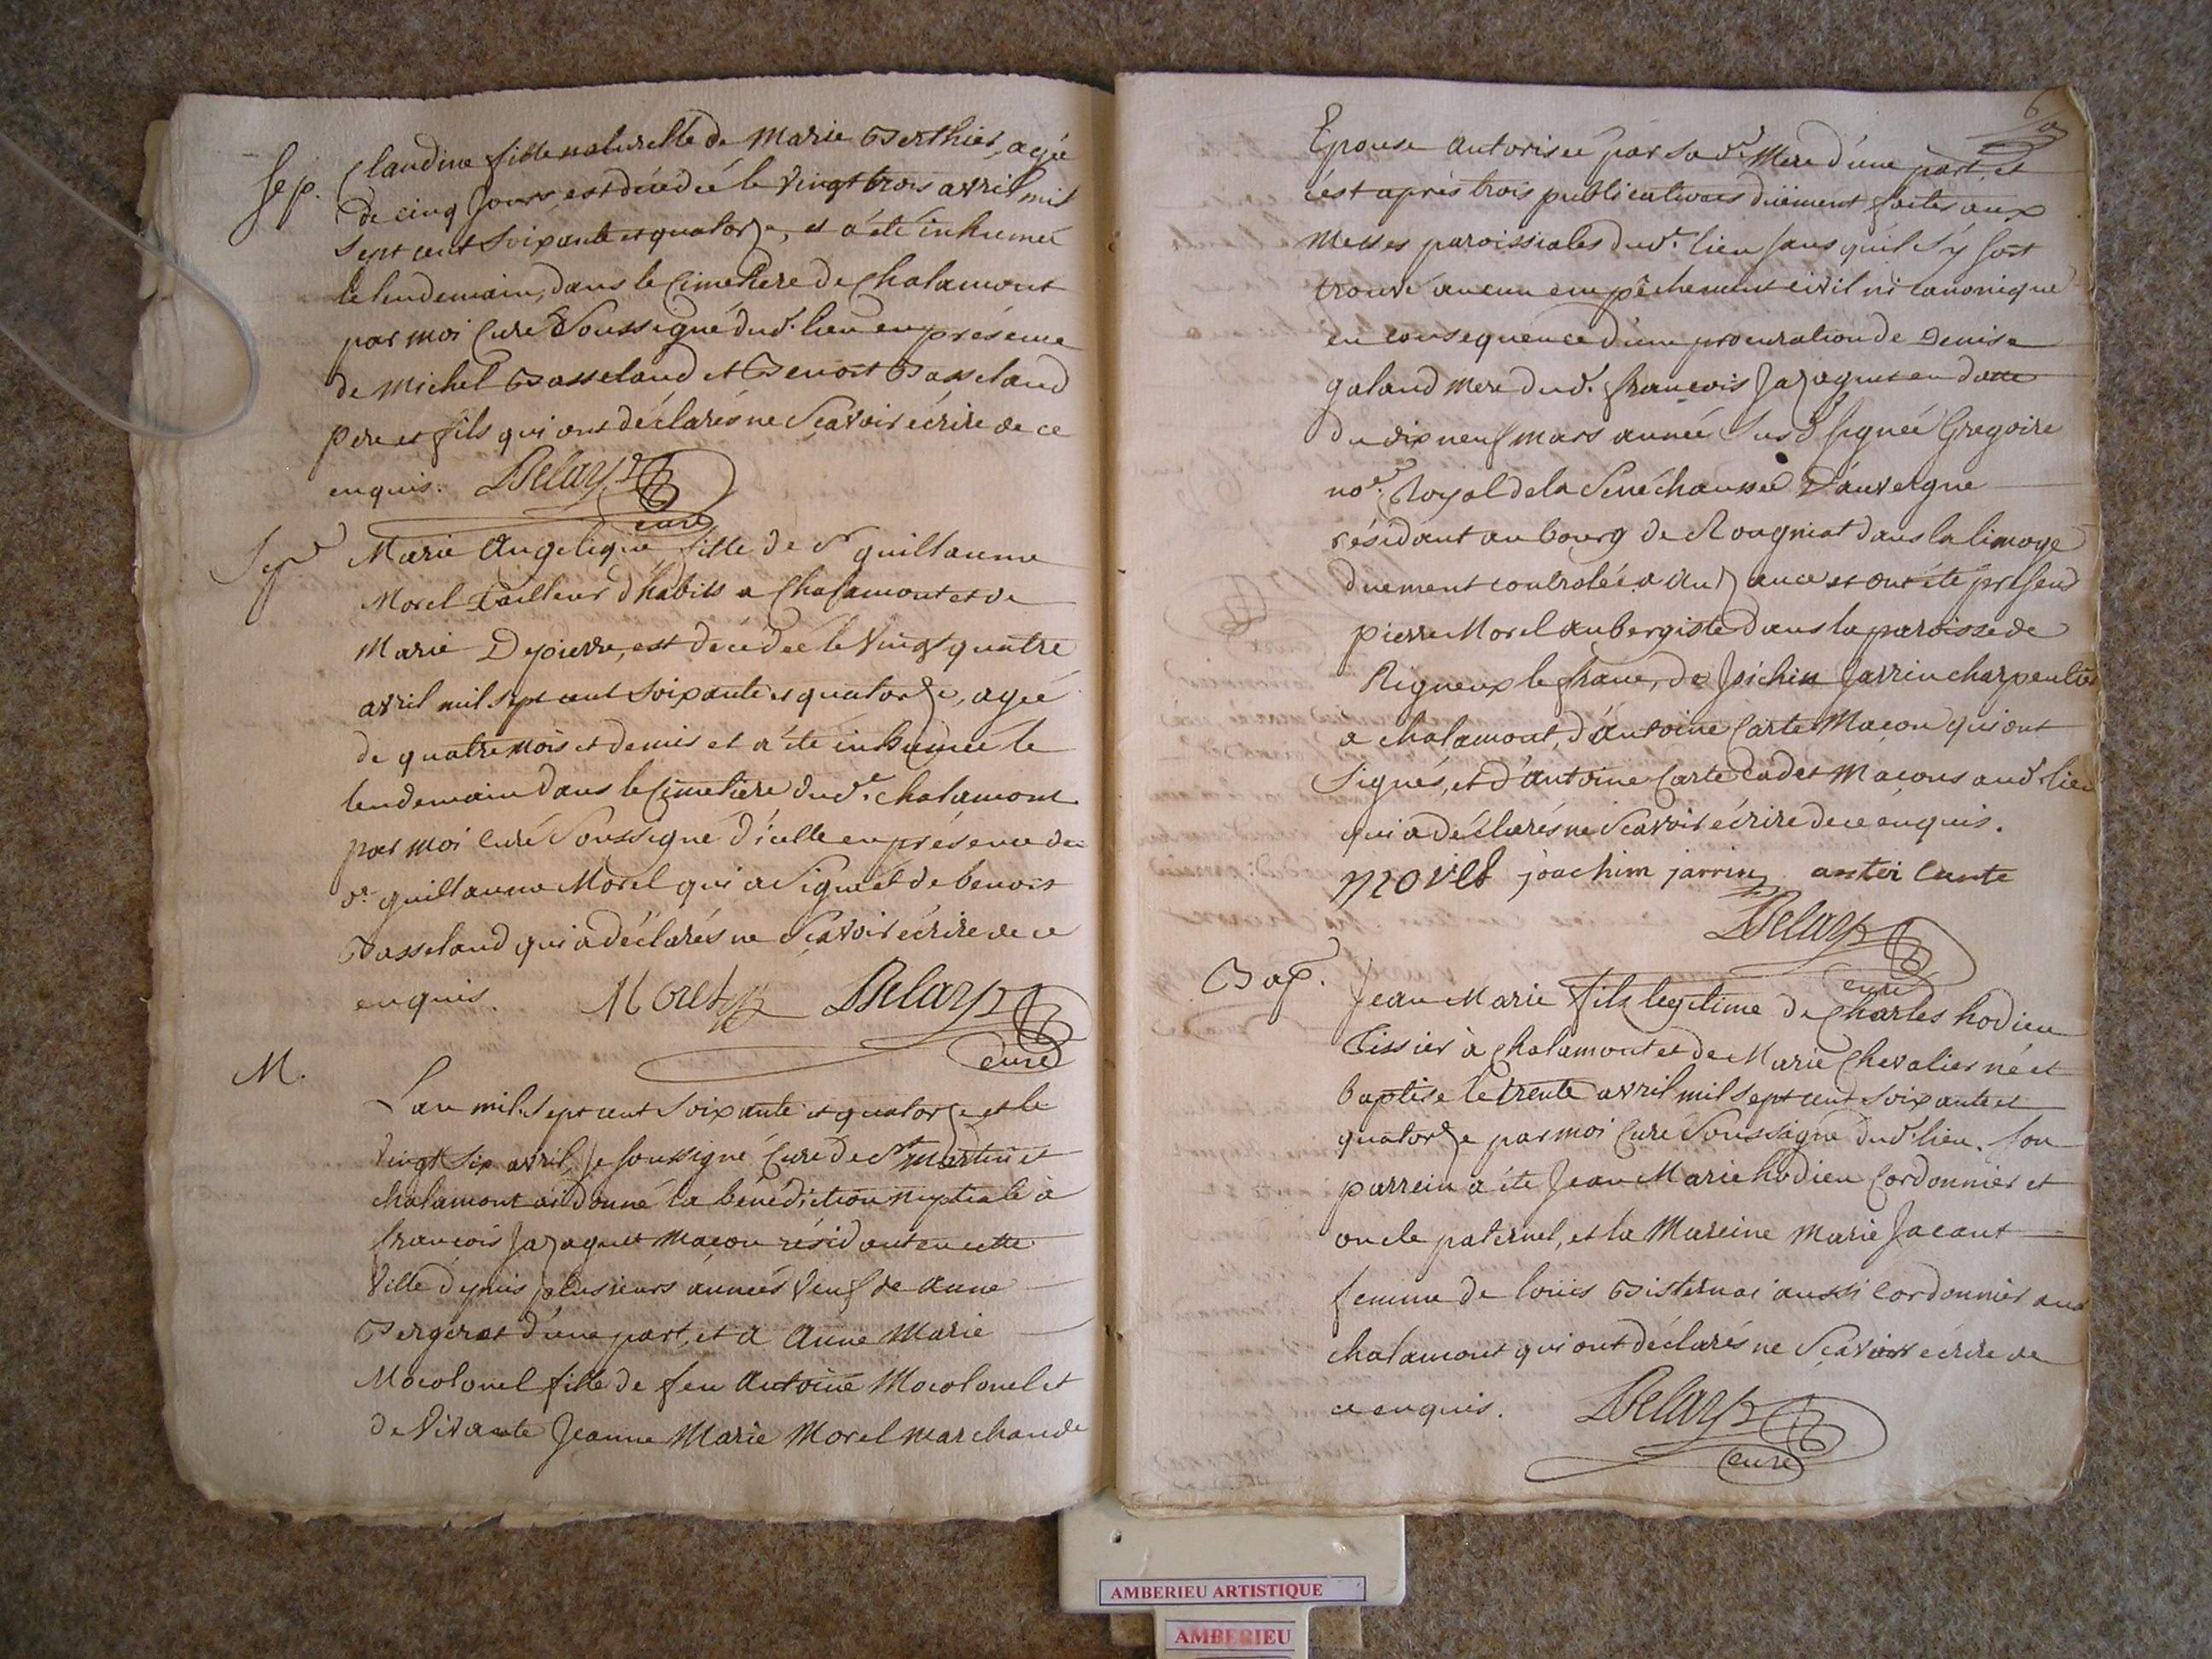 Sep. Claudine fille naturelle de Marie Berthier, agée
de cinq jours, est décedée le vingt trois avril mil
sept cent soixante et quatorze, et a été inhumée
le lendemain, dans le Cimetiere de Chalamont
par moi Curé Soussigné dud. lieu en présence
de Michel Basseland et Benoit Basseland
pere et fils qui ont déclarés ne Sçavoir écrire de ce
enquis. Delary
curé
Sep. Marie Angelique fille de Sr guillaume
Morel Tailleur d'habits a Chalamont et de
Marie Depierre, est décédée le vingt quatre
avril mil sept cent soixante et quatorze, agée
de quatre mois et demis et a été inhumée le
lendemain dans le Cimetiere dud. chalamont
par moi Curé Soussigné d'icelle en présence de
Sr guillaume Morel qui a Signé et de benoit
Basseland qui a déclarés ne Sçavoir écrire de ce
enquis. Morel Delary
curé
M.
L'an mil sept cent soixante et quatorze et le
vingt six avril, je soussigné Curé de St Martin et
chalamont ai donné la bénédiction nuptiale à
françois Jazaguet Maçon résidant en cette
Ville depuis plusieurs années Veuf de Anne
Bergeret d'une part, et a Anne Marie
Mocolonel fille de feu Antoine Mocolonel et
de Vivante Jeanne Marie Morel marchande
Epouse autorisée par sad. Mere d'une part, et
c'est après trois publications düement faites aux
Messes paroissiales dud. lieu sans qu'il s'y soit
trouvé aucun empêchement civil ni canonique
en consequence d'une procuration de Denise
galand mere dud. françois Jazaguet en datte
du dix neuf mars année susd. signée Gregoire
nore. Royal de la Sénéchaussée D'auvergne
résidant au bourg de Rougnat dans la limoge
duement controlée a Auzance et ont été présens
pierre Morel aubergiste dans la paroisse de
Rigneux le franc, de Joichin Jarrin charpentier
a chalamont, d'Antoine Carte Maçon qui ont
Signés, et d'Antoine Carte Cadet Maçons aud. lieu
qui a déclarés ne Scavoir écrire de ce enquis.
morel joachim jarrin
Delary
curé
Bap. Jean Marie fils legitime de Charles hodieu
Tissier à Chalamont et de Marie Chevalier né et
baptisé le trente avril mil sept cent soixante et
quatorze par moi Curé Soussigné dud. lieu. Son
parrein a été Jean Marie hodieu Cordonnier et
oncle paternel, et la Mareine Marie Jacant
femme de louis Bisternai aussi Cordonnier aud
chalamont qui ont déclarés ne Sçavoir écrire de
ce enquis. Delary
curé
AMBERIEU ARTISTIQUE
AMBERIEU